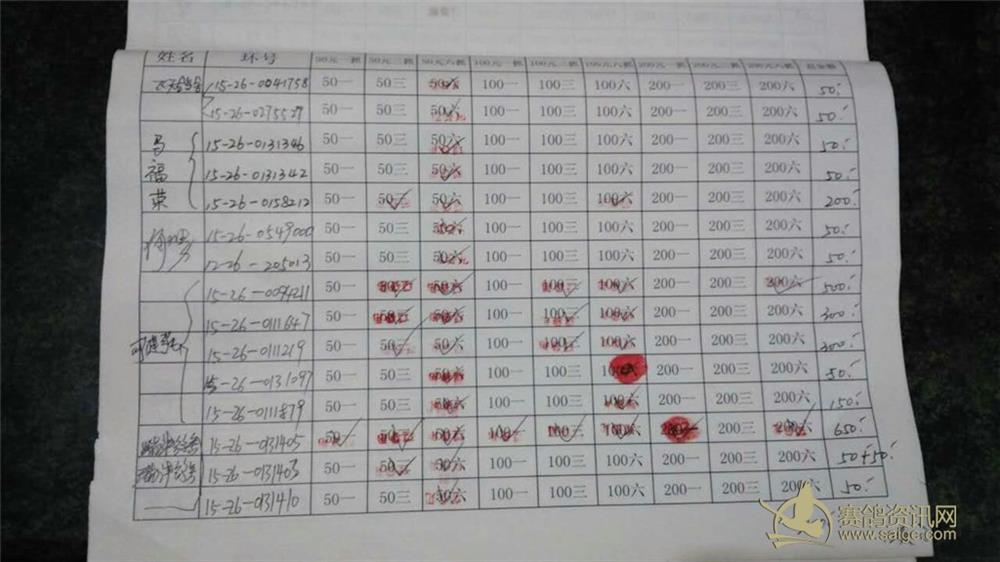 姓名 环号 50元一抓 50元三抓 50元六抓 100元一抓 100元三抓 100元六抓 200元一抓 200元三抓 200元六抓 总金额
15-26-0041758 50一 50三 50六 100一 100三 100六 200一 200三 200六 50.-
15-26-0275527 50一 50三 50六 100一 100三 100六 200一 200三 200六 50.-
马福荣 15-26-0131346 50一 50三 50六 100一 100三 100六 200一 200三 200六 50.-
15-26-0131342 50一 50三 50六 100一 100三 100六 200一 200三 200六 50.-
15-26-0158212 50一 50三 50六 100一 100三 100六 200一 200三 200六 200.-
15-26-0549000 50一 50三 50六 100一 100三 100六 200一 200三 200六 50.-
12-26-205013 50一 50三 50六 100一 100三 100六 200一 200三 200六 50.-
15-26-0094241 50一 50三 50六 100一 100三 100六 200一 200三 200六 500.-
15-26-0111647 50一 50三 50六 100一 100三 100六 200一 200三 200六 300.-
15-26-0111219 50一 50三 50六 100一 100三 100六 200一 200三 200六 300.-
15-26-0131097 50一 50三 50六 100一 100三 100六 200一 200三 200六 50.-
15-26-0111879 50一 50三 50六 100一 100三 100六 200一 200三 200六 150.-
15-26-0131405 50一 50三 50六 100一 100三 100六 200一 200三 200六 650.-
15-26-0131403 50一 50三 50六 100一 100三 100六 200一 200三 200六 50+50.-
15-26-0131410 50一 50三 50六 100一 100三 100六 200一 200三 200六 50.-
赛鸽资讯网
www.saige.com